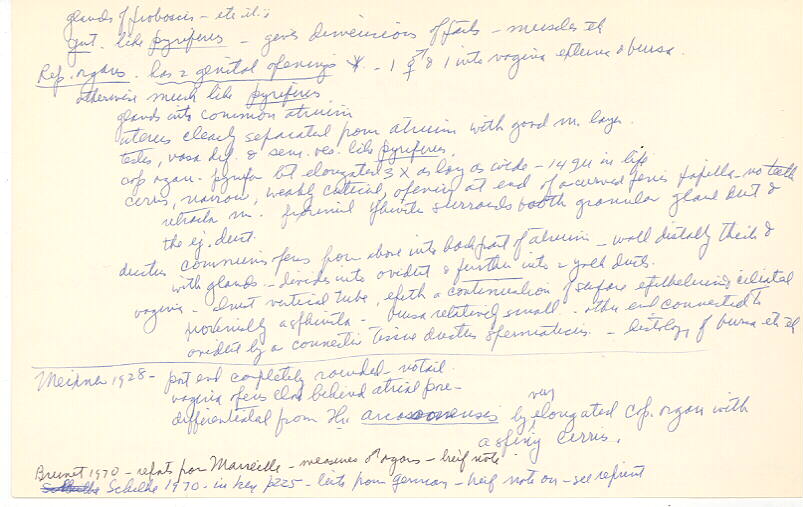 glands of proboscis - etc etc
gut like pyriferus - gives dimensions of parts - muscles etc
Rep. organs. has 2 genital openings - 1 ♂ & 1 into vagina externa & bursa.
otherwise much like pyriferus
glands into common atrium
uterus clearly separated from atrium with good m. layer.
testes, vasa def. & sem. ves. like pyriferus.
cop organ - pyrifor but elongated 3 X as long as wide - 14 in life
cirrus, narrow, weakly opening at end of a curved penis papilla - no teeth
retractor m. surrounds both granular gland duct &
the ej. duct.
ductus communis opens from above into back part of atrium - wall distally thick &
with glands - divides into oviduct & further into 2 yolk ducts.
vagina - short vertical tube, epith a continuation of surface epithelium & ciliated
proximally a sphincter - bursa relatively small - other end connected to
oviduct by a connective tissue ductus spermaticus. - histology of bursa etc etc
Meixner 1928 - post end completely rounded - no tail.
vagina opens close behind atrial pore -
differentiated from the by very elongated cop. organ with
a spiny cirrus.
Brunet 1970 - reports from Marseille - measures ♂ organs - brief note
Schilke 1970 - in key p225 - lists from german - brief note on - see reprint